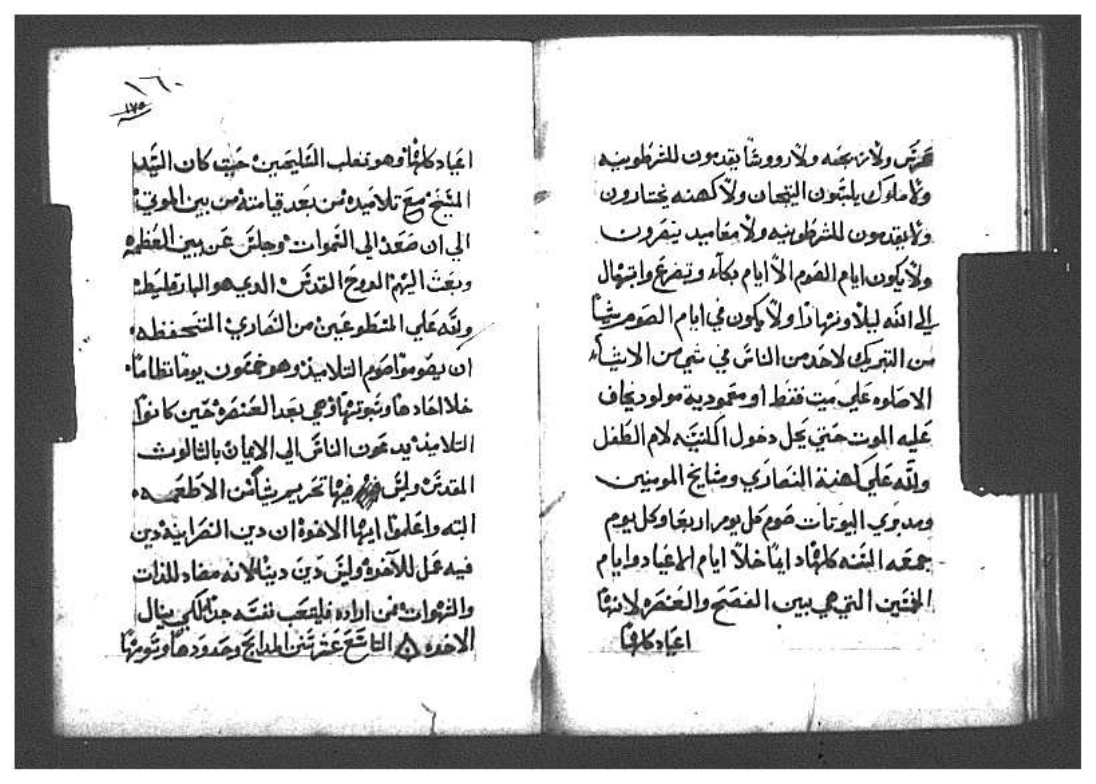 عرس ولا نيحه ولا رووسا يقدمون للشرطونيه
ولا ملوك يلبسون التيجان ولا كهنه يختارون
ولا يقدمون للشرطونيه ولا معاميد يتقربون
ولا يكون ايام الصوم الا ايام بكاء وتضرع وابتهال
الي الله ليلا ونهارا ولا يكون في ايام الصوم شيا
من التبريك لاحد من الناس في شي من الاشياء
الاصلوه علي ميت فقط او معموديه مولود يخاف
عليه الموت حتي يحل دخول الكنيسه لام الطفل
ولله علي كهنة النصاري ومشايخ المومنين
ومدبري البيوتات صوم كل يوم اربعا وكل يوم
جمعه السنه كلها دايما خلا ايام الاعياد وايام
الخمسين التي هي بين الفصح والعنصره لانها
اعياد كلها
١٦٠
١٧٥
اعياد كلها وهو تغلب المسيحيين حيث كان السيد
المسيح مع تلاميذه من بعد قيامته من بين الموتي
الي ان صعد الي السموات وجلس عن يمين العظمه
وبعث اليهم الروح القدس الدي هو البارقليط
ولله علي المتطوعين من النصاري المتحفظه
ان يصوموا صوم التلاميذ وهو خمسون يوما تظاما
خلا احادها وسبوتها وهي بعد العنصره حين كانوا
التلاميذ يدعون الناس الي الايمان بالثالوث
المقدس وليس فيها تحريم شيا من الاطعمه
البته واعلموا ايها الاخوة ان دين النصرانية دين
فيه عمل للآخرة وليس دين دنيا لانه مضاد للذات
والشهوات فمن اراده فليتعب نفسه جدا لكي ينال
الاخره التاسع عشر سنن المدايح وحدودها وتومنها